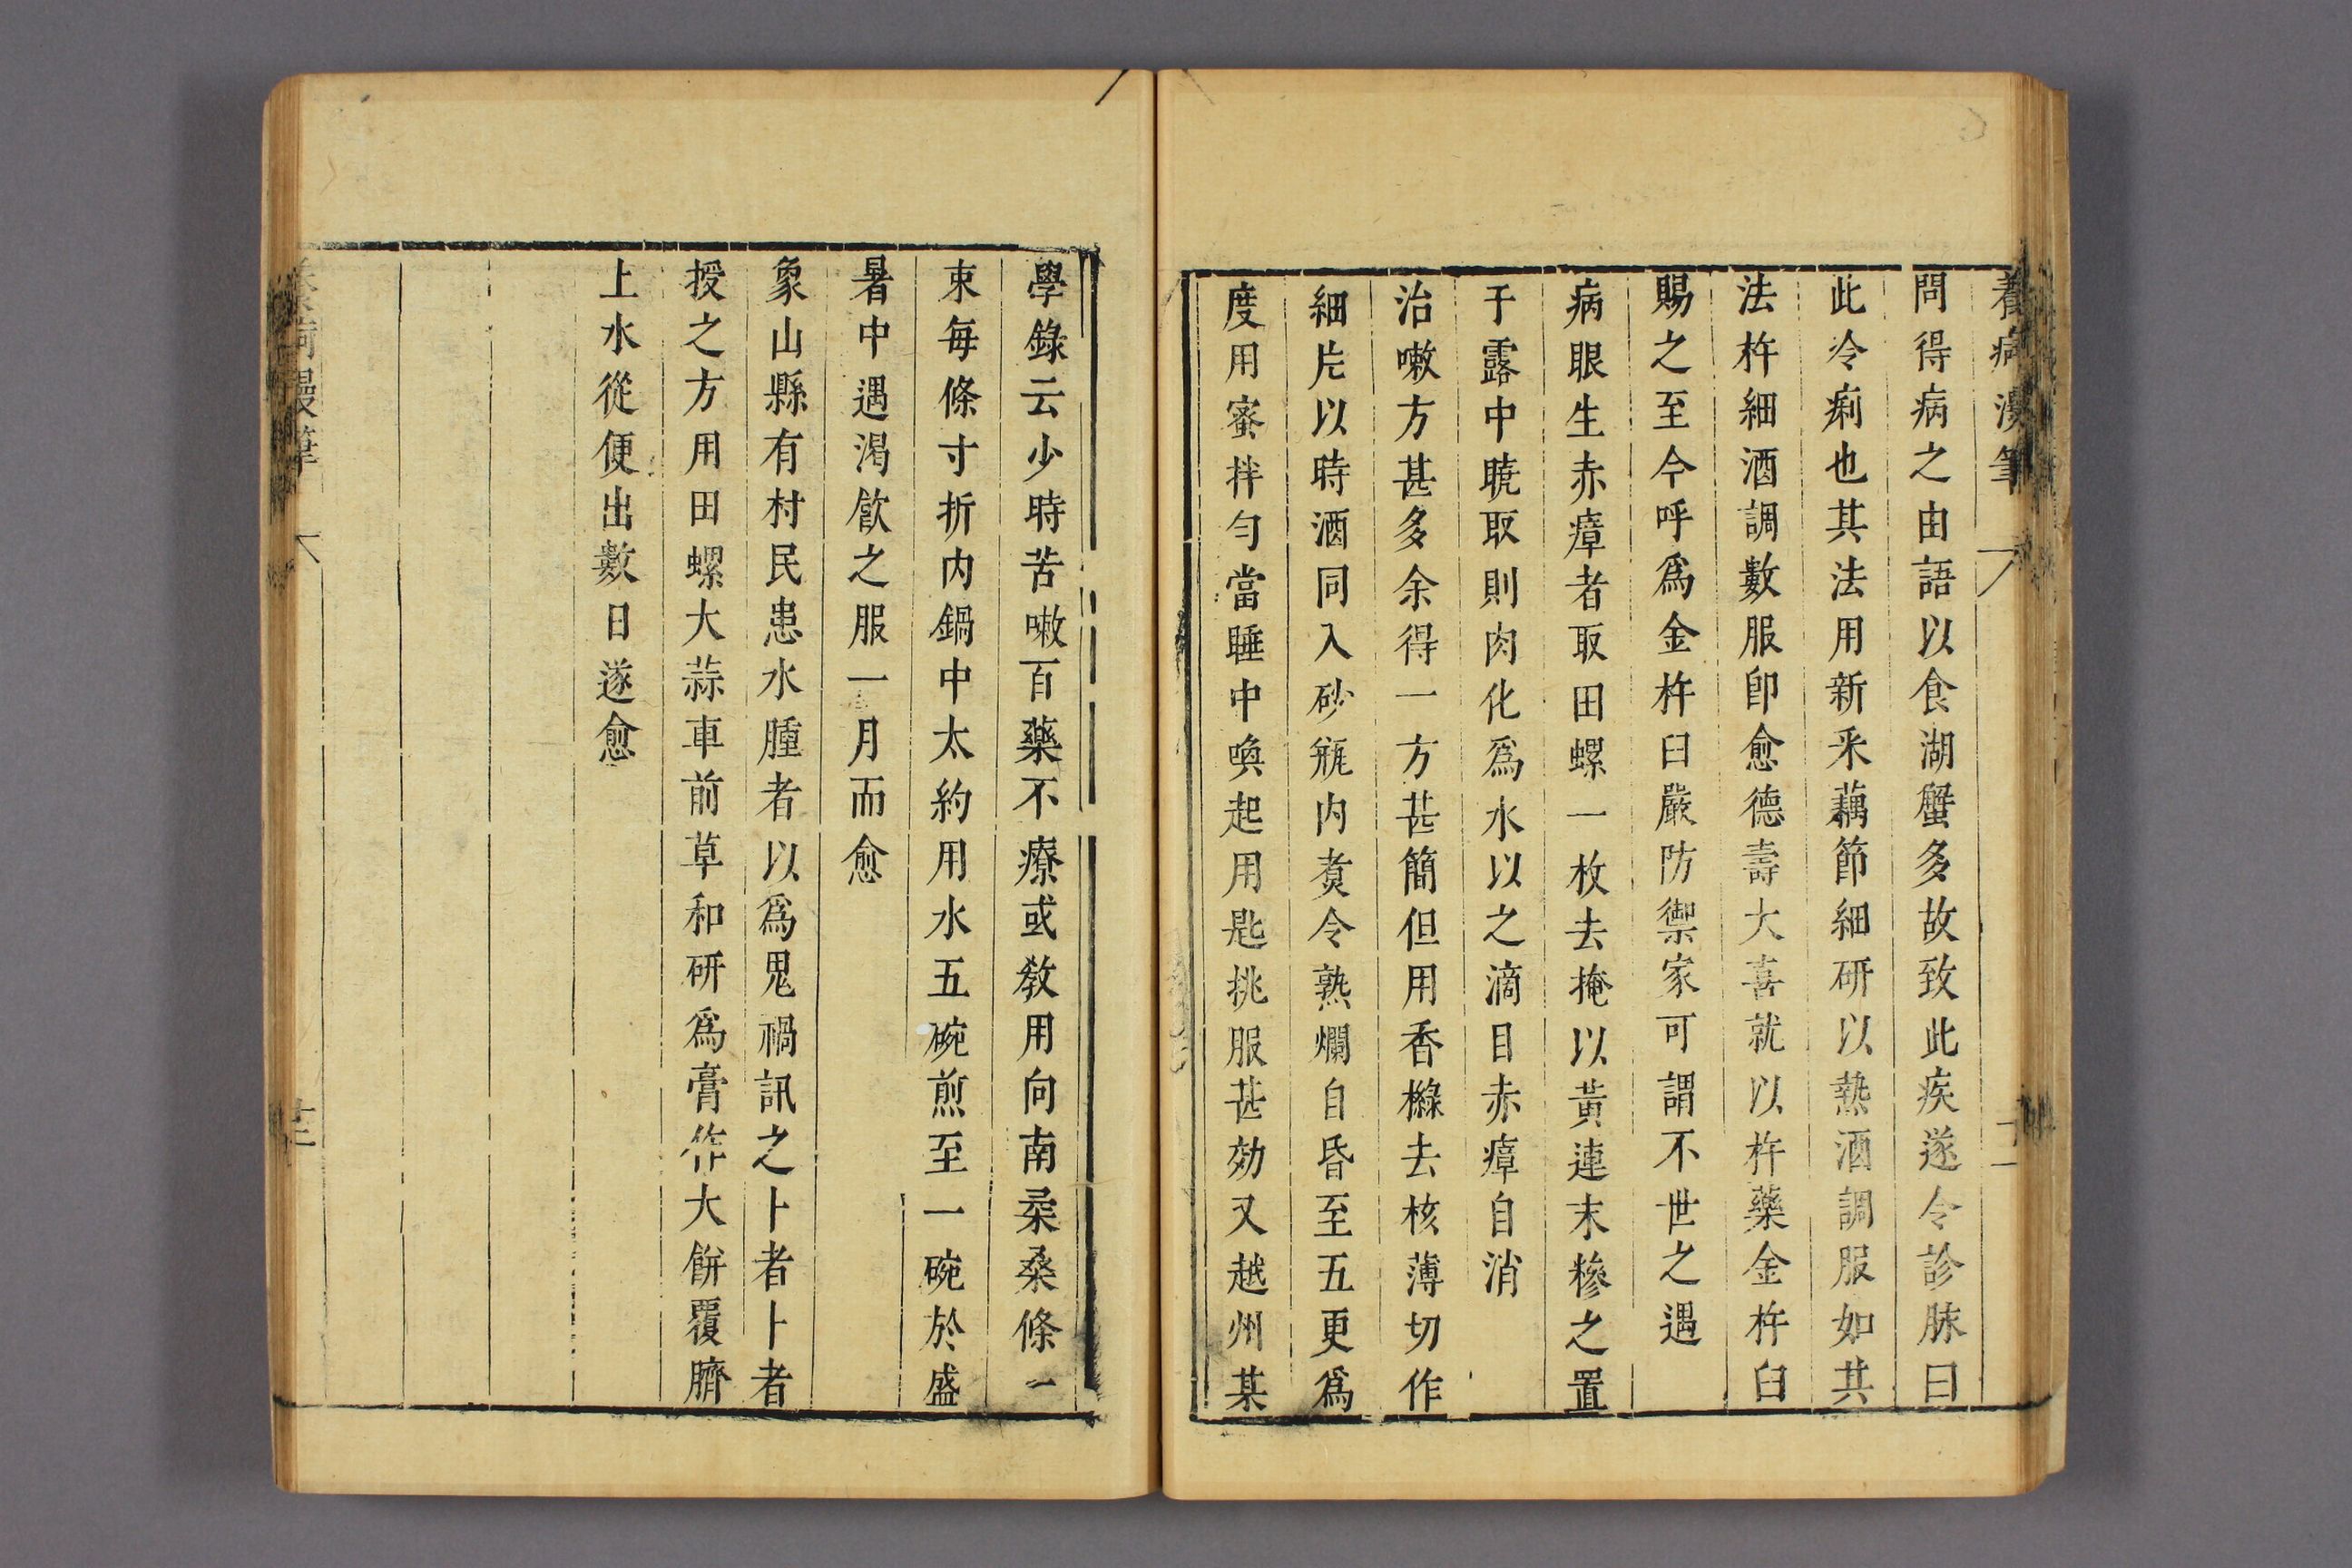 養疴漫筆
問得病之由語以食湖蟹多故致此疾遂令診脉曰
此冷痢也其法用新采藕節細研以熱酒調服如其
法杵細酒調數服卽愈德壽大喜就以杵藥金杵臼
賜之至今呼爲金杵臼嚴防禦家可謂不世之遇
病眼生赤瘴者取田螺一枚去掩以黃連末糝之置
于露中曉取則肉化爲水以之滴目赤瘴自消
治嗽方甚多余得一方甚簡但用香櫞去核薄切作
細片以時酒同入砂瓶內煮令熟爛自昏至五更爲
度用蜜拌勻當睡中喚起用匙挑服甚効又越州某
學錄云少時苦嗽百藥不療或教用向南柔桑條一
束每條寸折內鍋中太約用水五碗煎至一碗於盛
暑中遇渴飲之服一月而愈
象山縣有村民患水腫者以爲鬼禍訊之卜者卜者
授之方用田螺大蒜車前草和研爲膏作大餅覆臍
上水從便出數日遂愈